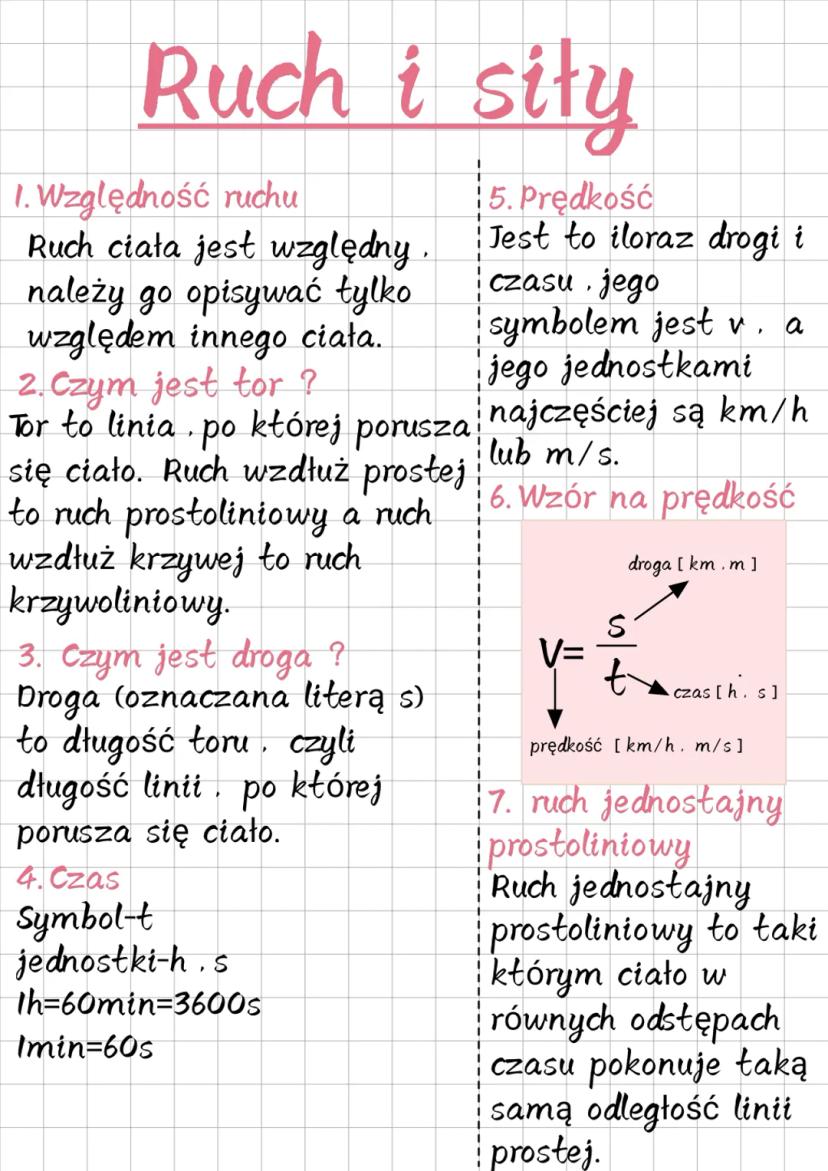 Ruch i siły
1. Względność ruchu
Ruch ciała jest względny ,
należy go opisywać tylko
względem innego ciała.
2. Czym jest tor ?
Tor to linia , po której porusza
się ciało. Ruch wzdłuż prostej
to ruch prostoliniowy a ruch
wzdłuż krzywej to ruch
krzywoliniowy.
3. Czym jest droga ?
Droga (oznaczana literą s)
to długość toru , czyli
długość linii , po której
porusza się ciało.
4. Czas
Symbol-t
jednostki-h , s
1h=60min=3600s
1min=60s
5. Prędkość
Jest to iloraz drogi i
czasu , jego
symbolem jest v , a
jego jednostkami
najczęściej są km/h
lub m/s.
6. Wzór na prędkość
droga [ km , m ]
V= s/t
czas [ h , s ]
prędkość [ km/h , m/s ]
7. ruch jednostajny
prostoliniowy
Ruch jednostajny
prostoliniowy to taki
którym ciało w
równych odstępach
czasu pokonuje taką
samą odległość linii
prostej.